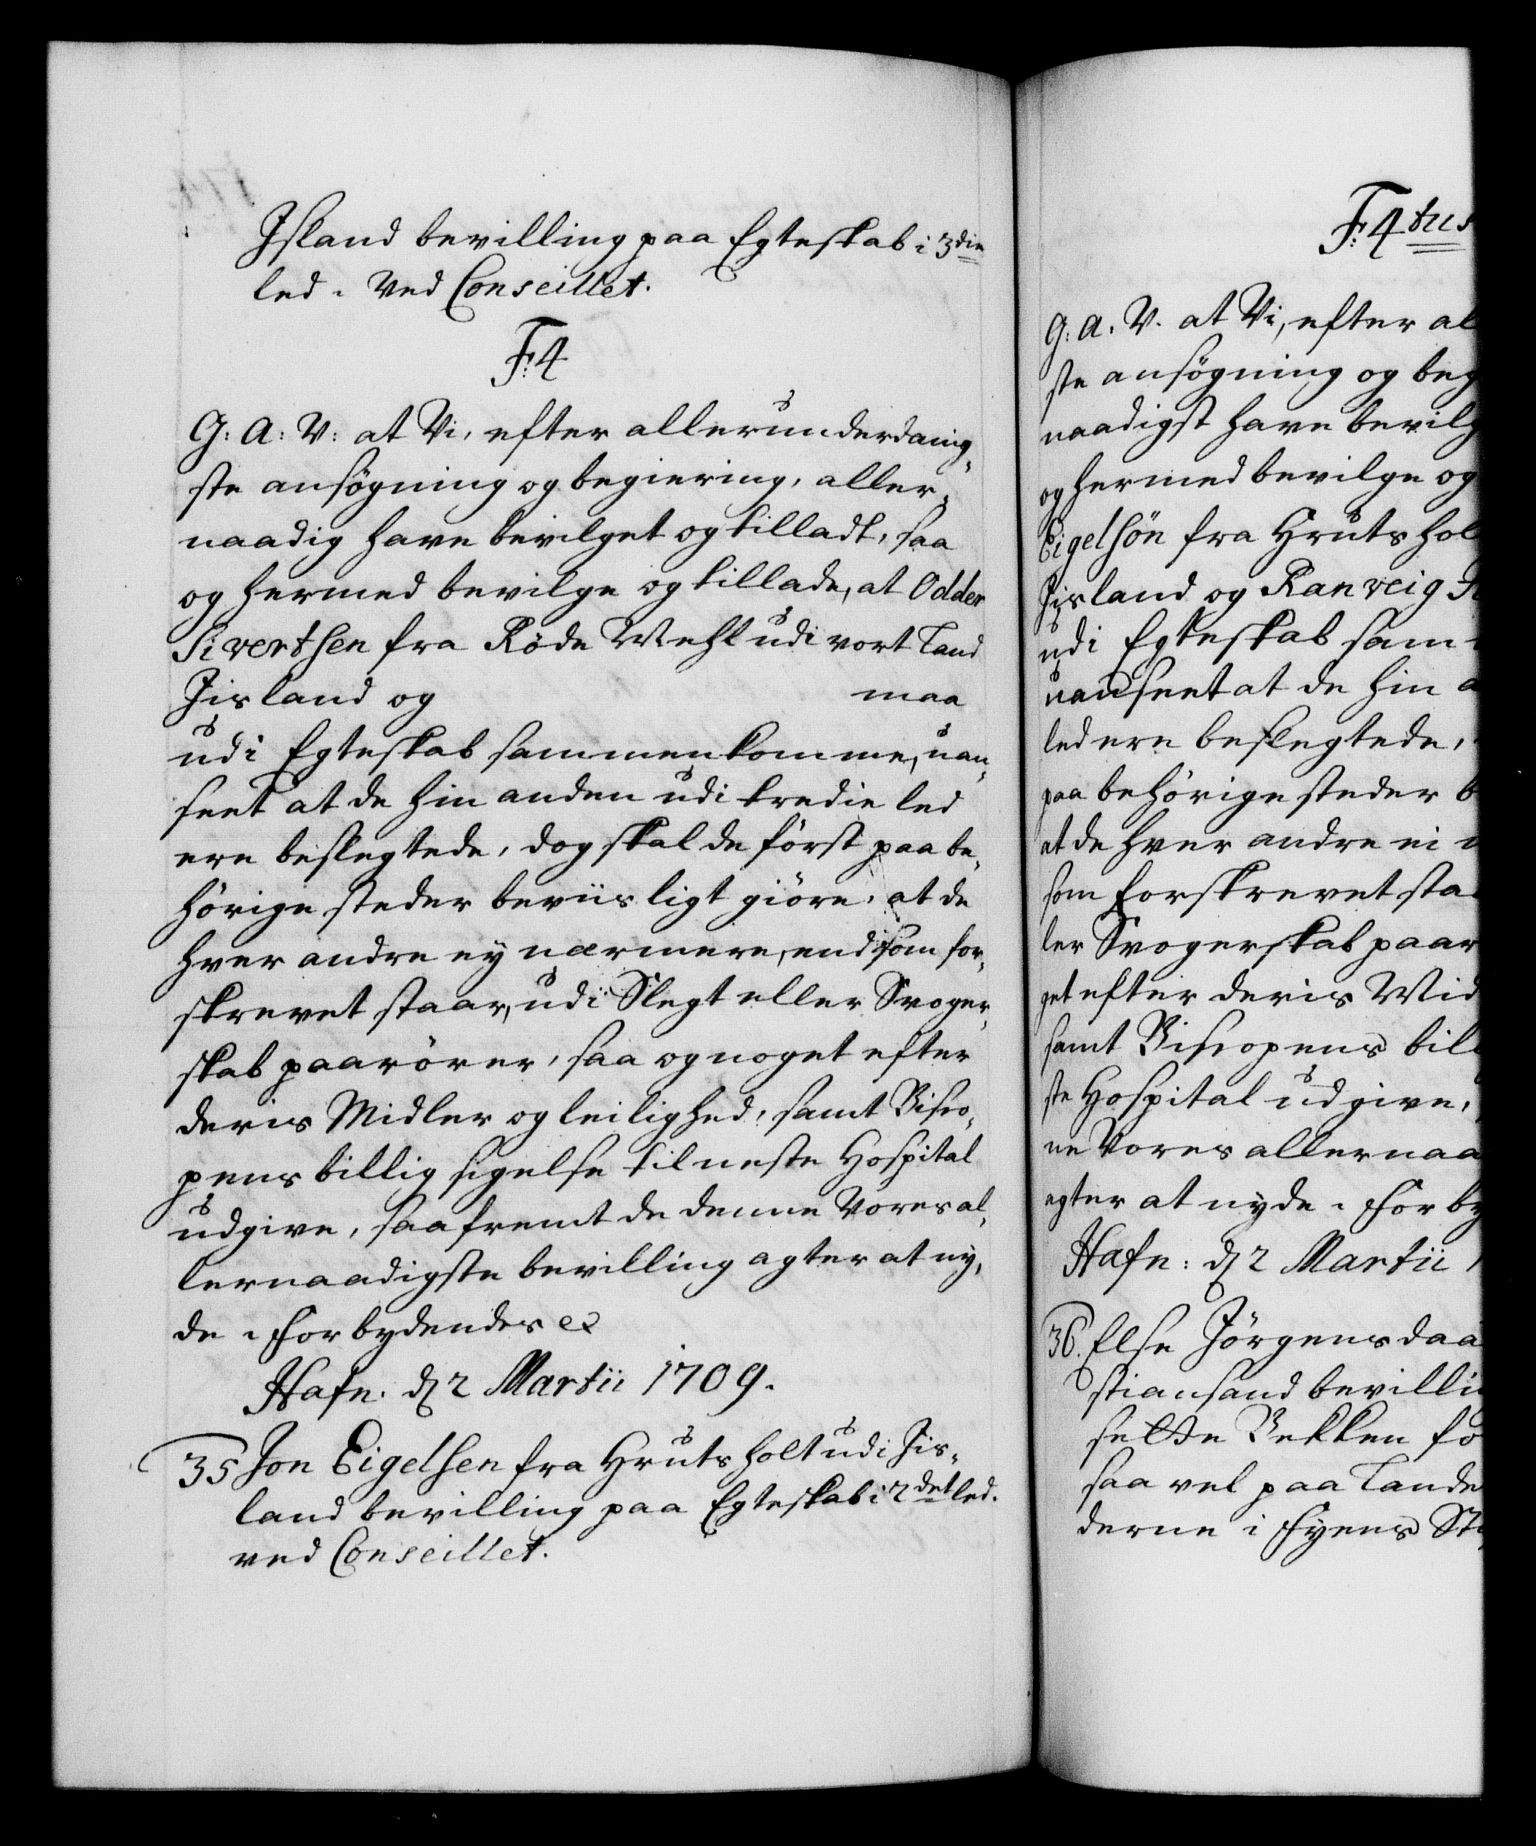 Island bevilling paa Egteskab i 3die
led. Ved Conseillet.
F:4
G: A: V: at Vi, efter allerunderdanig-
ste ansøgning og begiering, aller-
naadig have bevilget og tilladt, saa
og hermed bevilge og tillade, at Odder
Sivertsen fra Røde Mehl udi vort Land
Jisland og maa
udi Egteskab sammenkomme, uan-
seet at de hin anden udi tredie led
ere beslegtede, dog skal de först paa be-
hörige steder beviisligt giöre, at de
hver andre ey nærmere, end som for-
skrevet staar, udi Slegt eller Svoger-
skab paarörer, saa og noget efter
deris Midler og leilighed, samt Bisco-
pens billig sigelse til neste Hospital
udgive, saafremt de denne Vores al-
lernaadigste bevilling agter at ny-
de. Forbydendes &
Hafn: d. 2 Martii 1709.
35 Jon Eigelsen fra Hruts holt udi Jis-
land bevilling paa Egteskab i 2det led.
ved Conseillet.
F:4tus
G: A: V. at Vi, efter al
ste ansögning og beg
naadigst have bevilg
og hermed bevilge og
Eigelsön fra Hruts hol
Jisland og Ranveig
udi Egteskab sam
uanseet at de hin a
led ere beslegtede,
paa behörige steder b
at de hver andre ei
som forskrevet sta
ler Svogerskab paar
get efter deris Mid
samt Biscopens bil
ste Hospital udgive,
ne Vores allernaa
agter at nyde. Forby
Hafn: d. 2 Martii 1
36. Else Jörgensdaa
stiansand bevilli
sette Bekken fo
saa vel paa Lande
derne i Fyens St